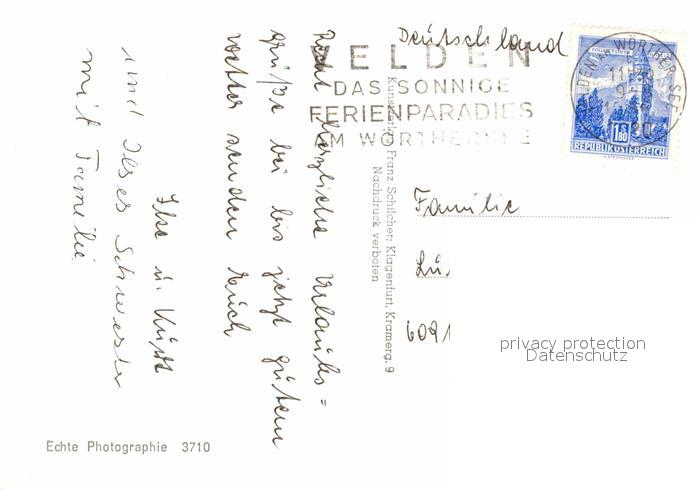 Deutschland
VELDEN
DAS SONNIGE
FERIENPARADIES
AM WÖRTHERSEE
VELDEN AM WÖRTHER SEE
REPUBLIK ÖSTERREICH
S 1.80
Recht herzliche Urlaubs=
grüße bei bis jetzt gutem
wetter senden Euch
Ilse u. Kurt
und Ilses Schwester
mit Familie
Kunstverlag Franz Schilcher, Klagenfurt, Kramerg. 9
Nachdruck verboten
Familie
Lü
6091
privacy protection
Datenschutz
Echte Photographie 3710